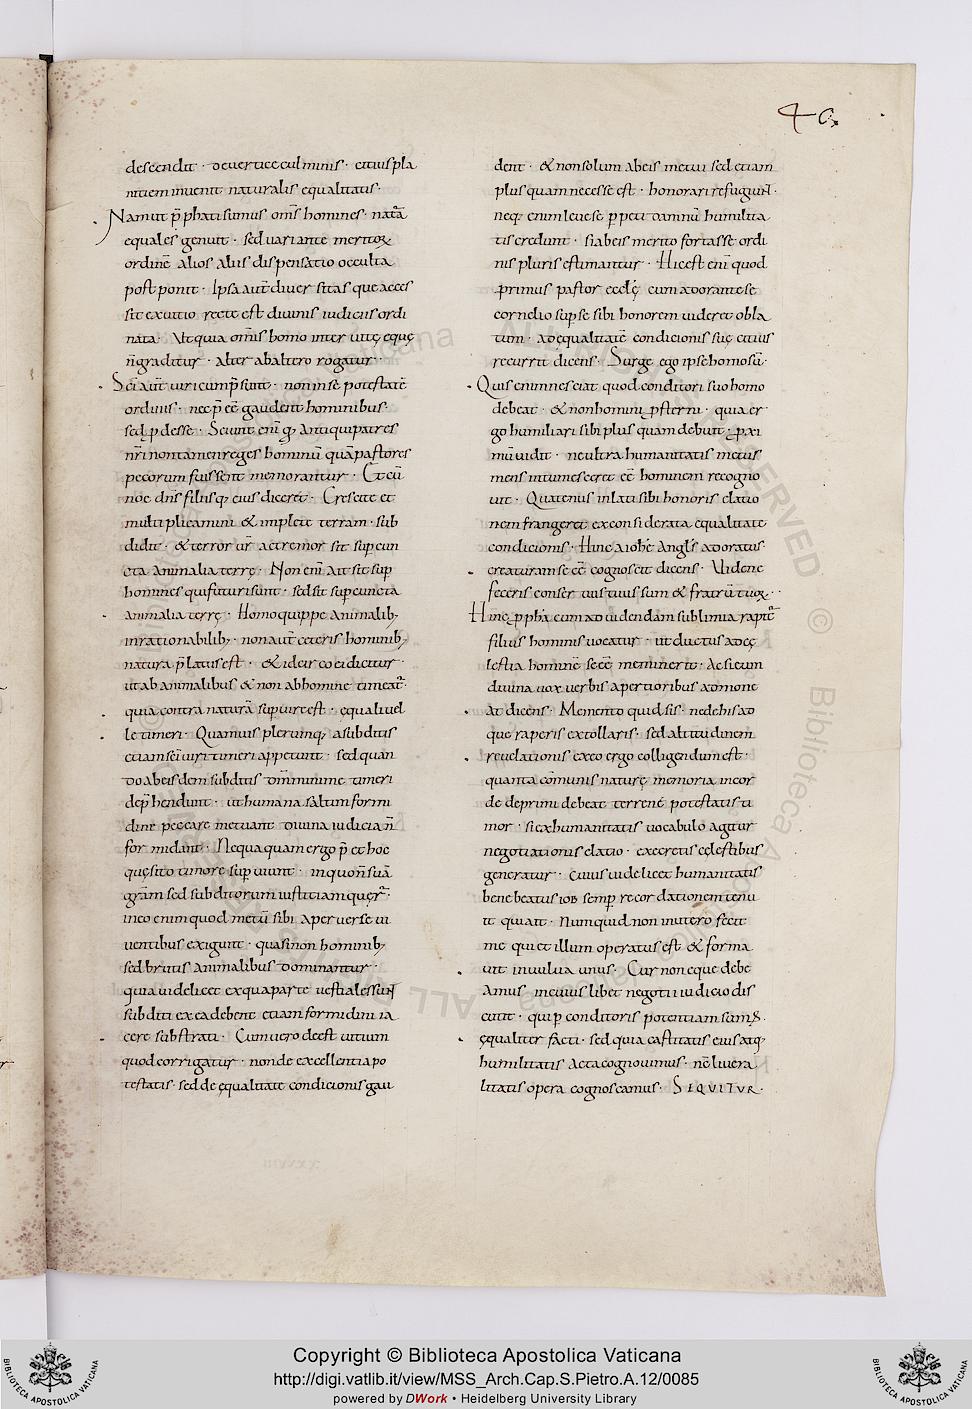 40
descendit · de uertice culminis · citius pla
nitiem inuenit naturalis equalitatis ·
Nam ut p̄phati sumus om̄s homines · nat̄a
equales genuit · sed uariante meritoꝝ
ordinē alios aliis dispensatio occulta
postponit · Ipsa aut̄ diuersitas que acces
sit ex uitio recte est diuinis iudiciis ordi
nata · Ut quia om̄is homo iter uitę eque
n̄ graditur · alter ab altero rogatur ·
Sc̄i aut̄ uiri cum p̄sunt · non in se potestatē
ordinis · nec p̄ee gaudent hominibus ·
sed ꝓdesse · Sciunt eni qꝫ antiqui patres
nr̄i non tamen reges hominū quā pastores
pecorum fuissent memorantur · Et cū
noe dn̄s filiisqꝫ eius diceret · Crescite et
multiplicamini & implete terram · sub
didit · & terror ur̄ ac tremor sit sup cun
cta animalia terrę · Non eni ait sit sup
homines qui futuri sunt · sed sit sup cuncta
animalia terrę · Homo quippe animalibꝫ
inrationabilibꝫ · non aut̄ ceteris hominibꝫ
natura p̄latus est · & idcirco ei dicitur ·
ut ab animalibus & non ab homine timeat̄ ·
quia contra naturā supuire est · ęquali uel
le timeri · Quamuis plerunqꝫ a subditis
etiam sc̄i uiri timeri appetunt · sed quan
do ab eisdem subditis dm̄ minime timeri
dep̄hendunt · ut humana saltim formi
dine peccare metuant diuina iudicia n̄
formidant · Nequaquam ergo p̄ et hoc
quęsito timore supuiunt · in quo n̄ suā
gl̄am sed subditorum iustitiam quęr̄ ·
in eo enim quod metū sibi a peruerse ui
uentibus exigunt · quasi non hominibꝫ
sed brutis animalibus dominantur ·
quia uidelicet ex qua parte uestiales sun̄
subditi ex ea debent etiam formidini ia
cere substrati · Cum uero deest uitium
quod corrigatur · non de excellentia po
testatis · sed de ęqualitate condicionis gau
dent · & non solum ab eis metui sed etiam
plus quam necesse est · honorari refugiun̄ ·
neqꝫ enim leue se ꝑpeti damnū humilita
tis credunt · si ab eis merito fortasse ordi
nis pluris estimantur · Hic est eni quod
primus pastor eccl̄ę cum adorante se
cornelio sup se sibi honorem uideret obla
tum · ad equalitatē condicionis suę citius
recurrit dicens · Surge ego ipse homo sū ·
Quis enim nesciat quod conditori suo homo
debeat · & non homini ꝓsterni · quia er
go humiliari sibi plus quam debuit · ꝓxi
mū uidit · ne ultra humanitatis metas
mens intumesceret ee hominem recogno
uit · Quatenus inlati sibi honoris elatio
nem frangeret ex considerata equalitate
condicionis · Hinc a iohe angl̄s adoratus ·
creaturam se ee cognoscit dicens · Uide ne
feceris conser uus tuus sum & fratrū tuoꝝ ·
Hinc ꝓpha cum ad uidendam sublimia rapit̄
filius hominis uocatur · ut ductus ad cę
lestia hominē se ee meminerit · Ac si eum
diuina uox uerbis apertioribus admone
at dicens · Memento quid sis · ne de his ad
que raperis extollaris · sed altitudinem
reuelationis ex eo ergo colligendum est ·
quanta cōmunis naturę memoria in cor
de deprimi debeat terrene potestatis ti
mor · si ex humanitatis uocabulo agitur
negotiationis elatio · ex ecretis cęlestibus
generatur · Cuius uidelicet humanitatis
bene beatus iob semp recordationem tenu
it qui ait · Numquid non in utero fecit
me qui et illum operatus est & forma
uit in uulua unus · Cur non eque debe
amus in cuiuslibet negotii iudicio dis
cutit · qui p conditoris potentiam sumꝰ ·
ęqualiter facti · sed quia castitatis eius atqꝫ
humilitatis acta cognouimus · nē liuera
litatis opera cognoscamus · SEQUITUR ·
Copyright © Biblioteca Apostolica Vaticana
http://digi.vatlib.it/view/MSS_Arch.Cap.S.Pietro.A.12/0085
powered by DWork • Heidelberg University Library